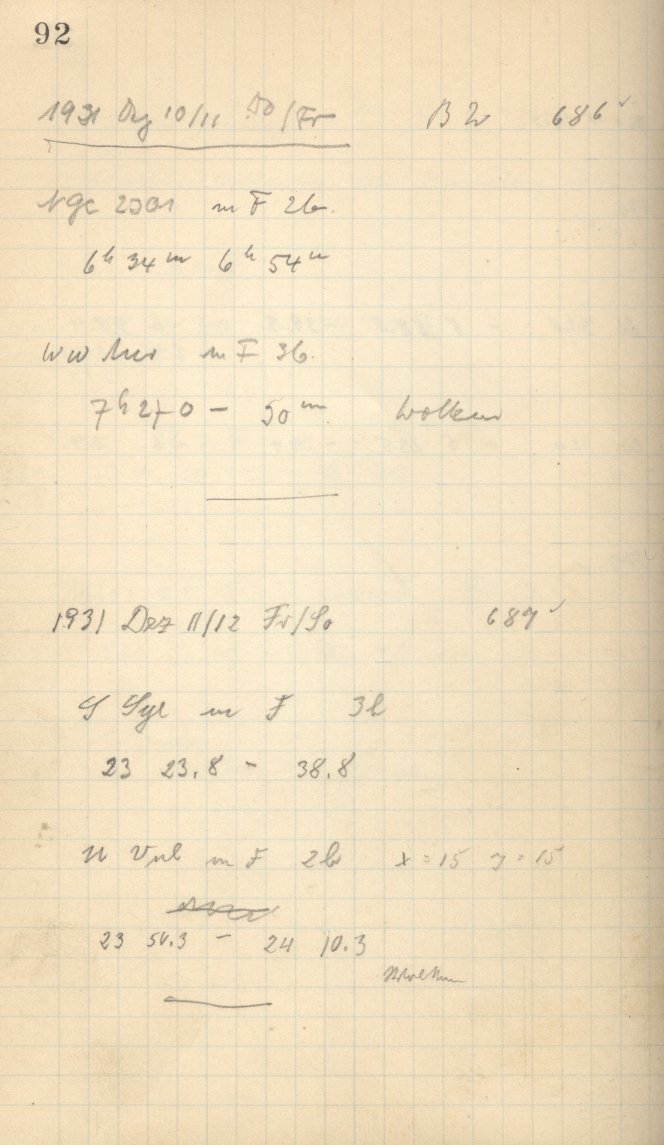 92
1931 Dez 10/11 Do/Fr B Z 686 ✓
NGC 2301 m F 2b.
6h 34m 6h 54m
WW Aur m F 3b.
7h 27.0 - 50m Wolken
1931 Dez 11/12 Fr/Sa 687 ✓
m F 3b
23 23.8 - 38.8
U Vul m F 2b x = 15 y = 15
23 54.3 - 24 10.3
Wolken